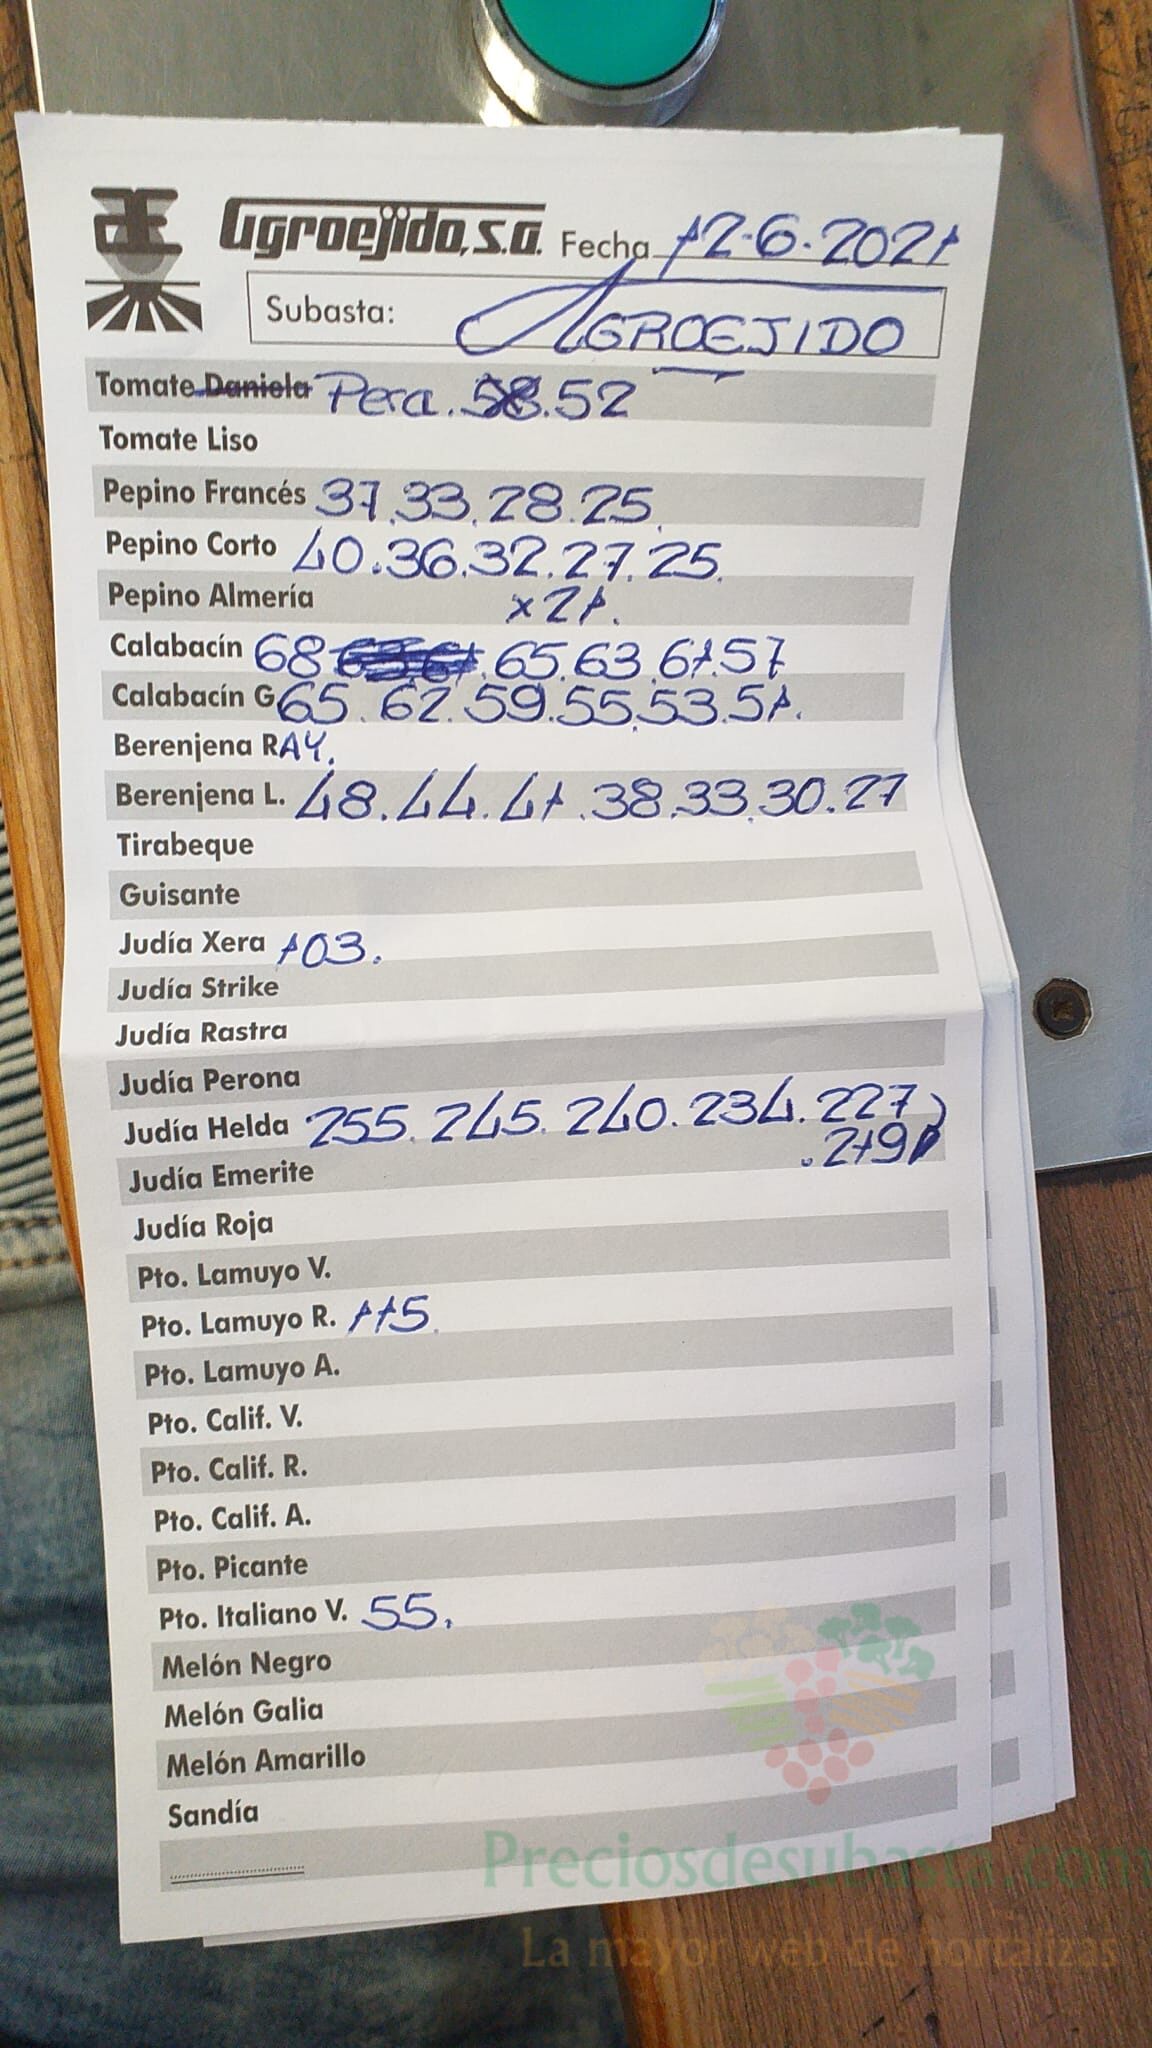 Agroejido, S.A. Fecha 12-6-2021
Subasta: AGROEJIDO
Tomate Daniela Pera. 58.52
Tomate Liso
Pepino Francés 37.33.28.25.
Pepino Corto 40.36.32.27.25.
Pepino Almería x21.
Calabacín 68 65.63.61.57
Calabacín G 65.62.59.55.53.51.
Berenjena RAY.
Berenjena L. 48.44.41.38.33.30.27
Tirabeque
Guisante
Judía Xera 103.
Judía Strike
Judía Rastra
Judía Perona
Judía Helda 255.245.240.234.227
.219
Judía Emerite
Judía Roja
Pto. Lamuyo V.
Pto. Lamuyo R. 115.
Pto. Lamuyo A.
Pto. Calif. V.
Pto. Calif. R.
Pto. Calif. A.
Pto. Picante
Pto. Italiano V. 55.
Melón Negro
Melón Galia
Melón Amarillo
Sandía
Preciosdesubasta.com
La mayor web de hortalizas